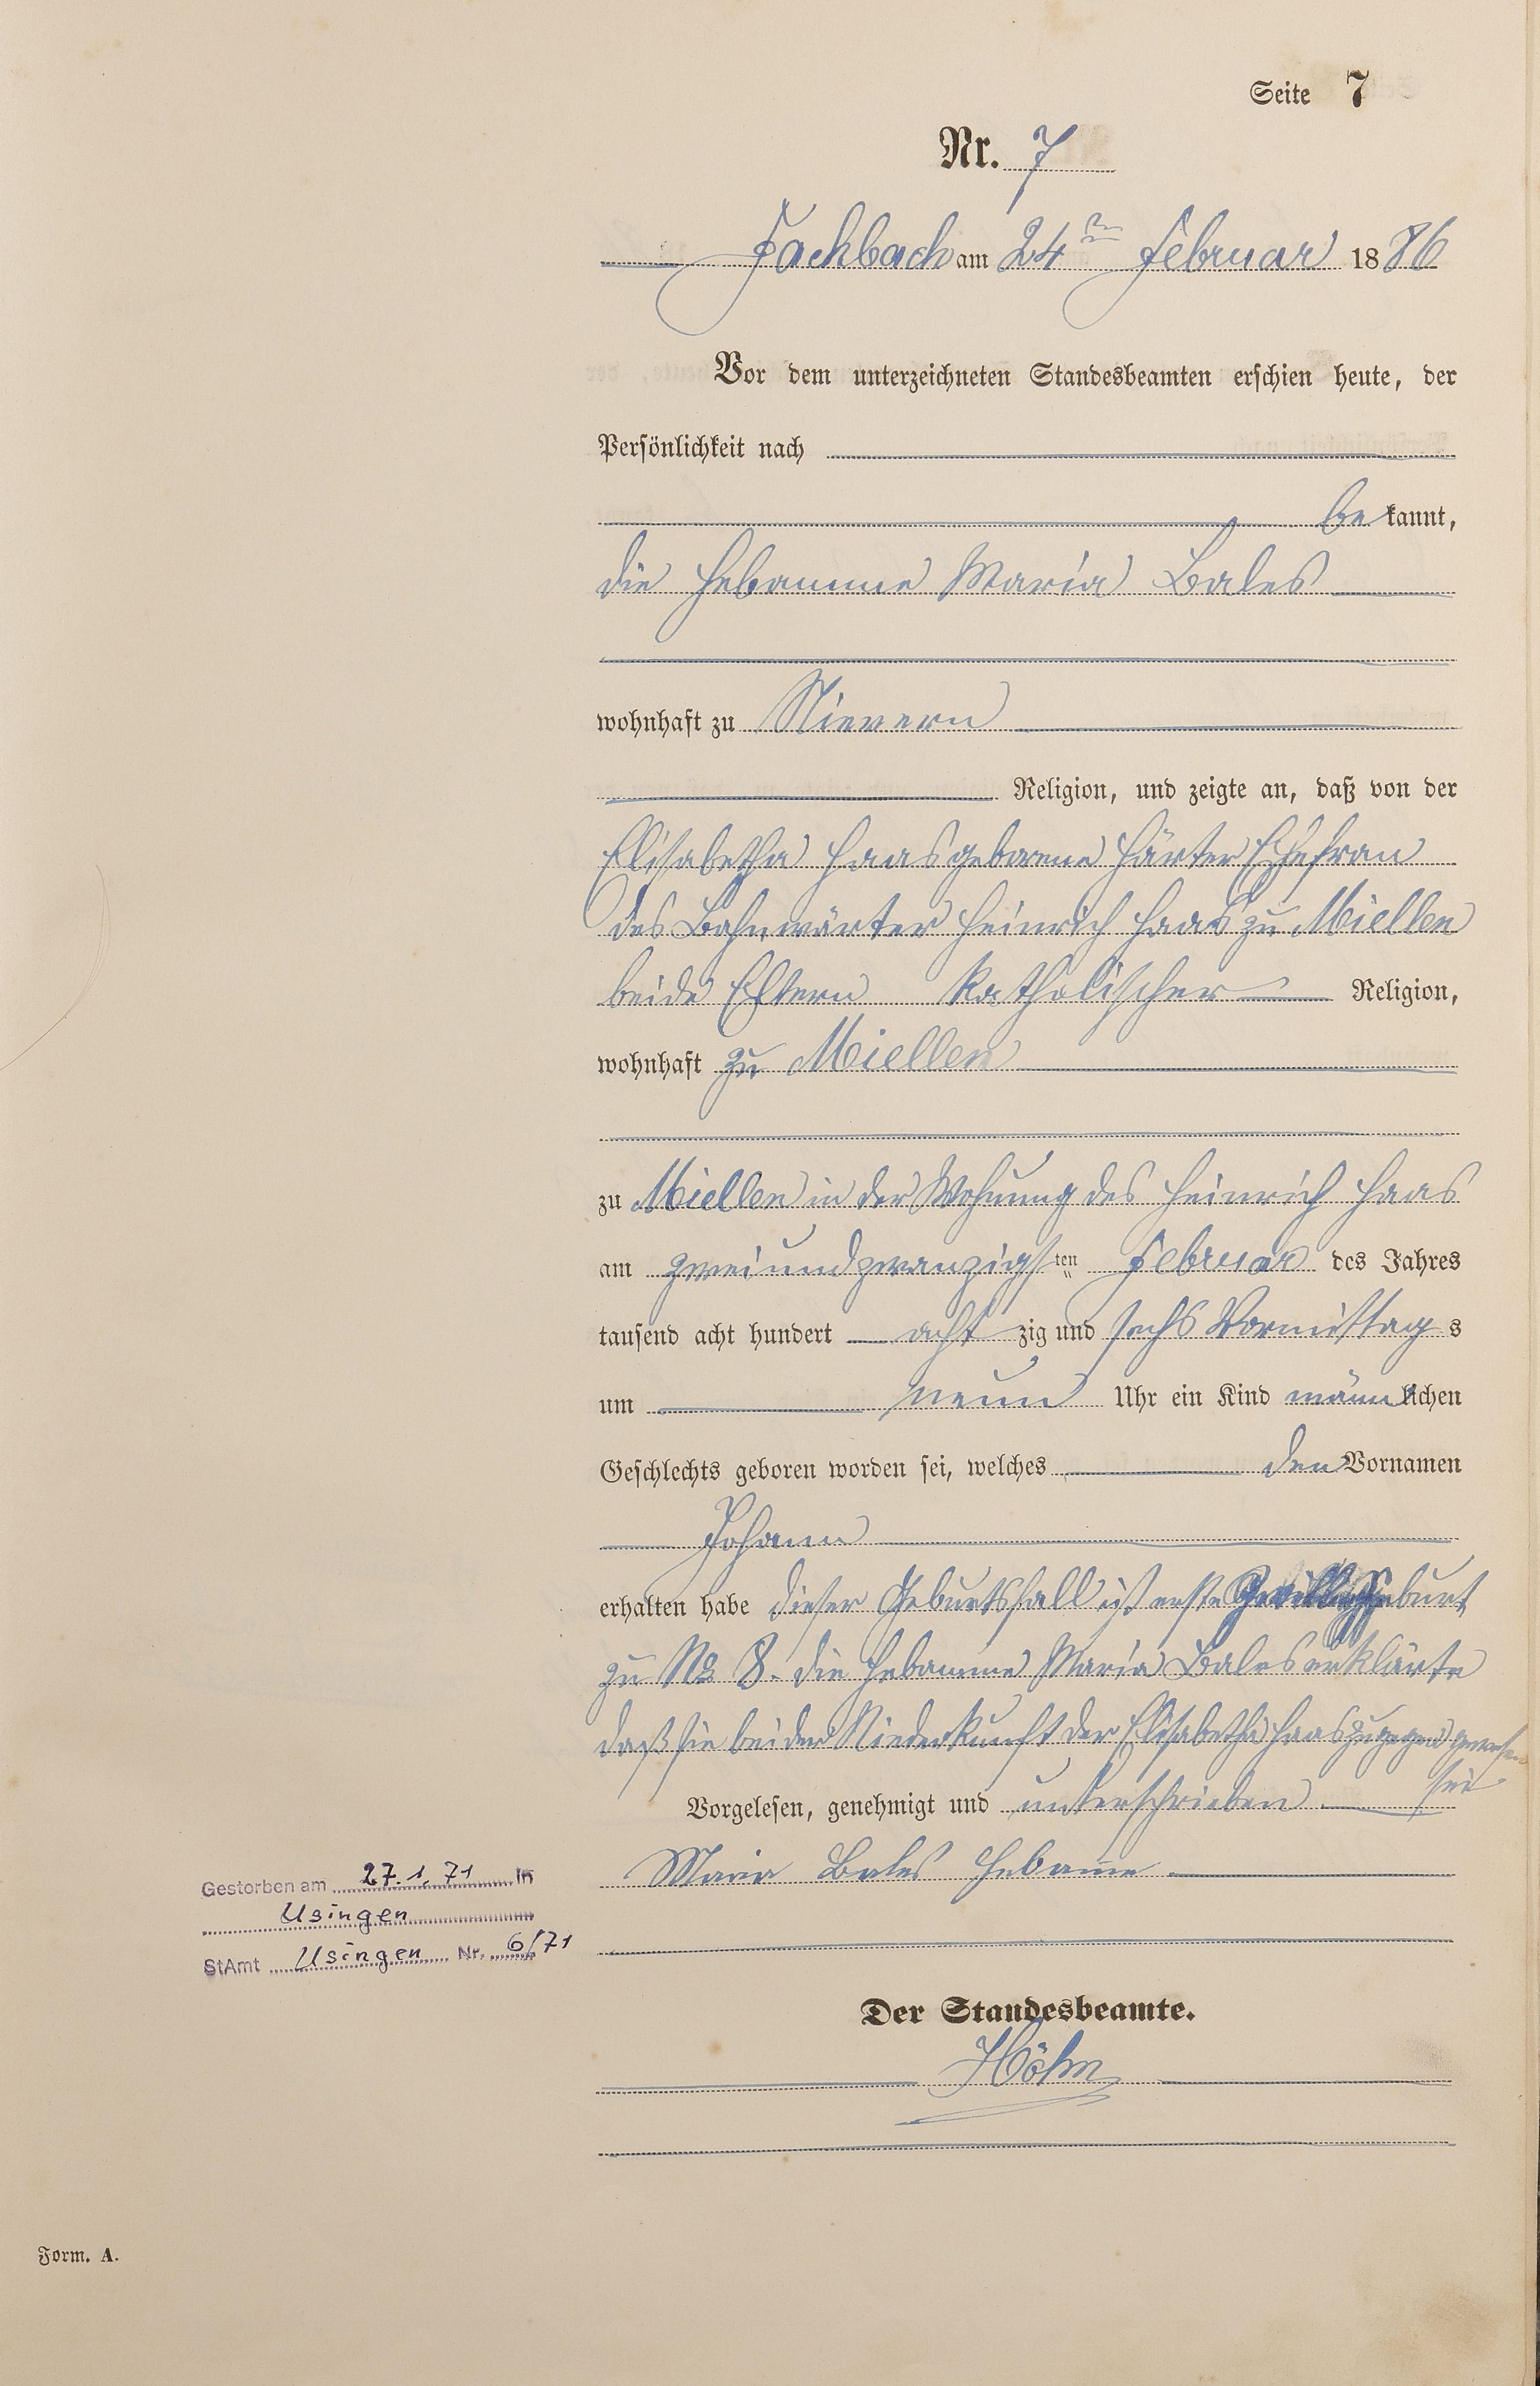 Seite 7
Nr. 7
Fachbach am 24ten Februar 1886
Vor dem unterzeichneten Standesbeamten erschien heute, der
Persönlichkeit nach
bekannt,
die Hebamme Maria Bales
wohnhaft zu Nievern
Religion, und zeigte an, daß von der
Elisabetha Haas geborene Härter Ehefrau
des Bahnwärter Heinrich Haas zu Miellen
beide Eltern katholischer Religion,
wohnhaft zu Miellen
zu Miellen in der Wohnung des Heinrich Haas
am zweiundzwanzigsten Februar des Jahres
tausend acht hundert achtzig und sechs Vormittags
um neun Uhr ein Kind männlichen
Geschlechts geboren worden sei, welches den Vornamen
Johann
erhalten habe dieser Geburtsfall ist erste Geburt
zu No 8. die Hebamme Maria Bales erklärte
daß sie bei der Niederkunft der Elisabetha Haas zugegen gewesen
sei
Vorgelesen, genehmigt und unterschrieben
Maria Bales Hebamme
Gestorben am 27.1.71 in
Usingen
StAmt Usingen Nr. 6/71
Der Standesbeamte.
Höhn
Form. A.